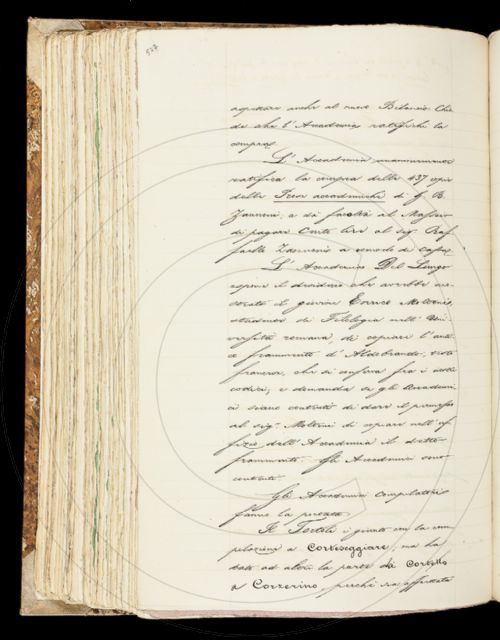 527
anche al nuovo Bilancio. Chie
de che l'Accademia ratifichi la
compra.
L'Accademia unanimemente
ratifica la compra delle 437 copie
delle Tesor accademiche di G. B.
Zannoni, e dà facoltà al Massaio
di pagare Cento lire al sig. Raf
faello Zannoni a comodo di cassa.
L'Accademico Del Lungo
espone il desiderio che avrebbe
il giovine Enrico Molteni,
studente di Filologia nell'Uni
versità romana, di copiare l'
frammento d'Aldobrandi,
che si conserva fra i nostri
codici; e domanda se gli Accademi
ci siano contenti di dare il permesso
al sig. Molteni di copiare nell'Uf
fizio dell'Accademia il detto
frammento. Gli Accademici sono
contenti.
Gli Accademici Compilatori
fanno la
Il Tortoli è giunto con la com
pilazione a Corteseggiare, ma ha
dato ad altri la parte da Cortello
a Corzerino, perchè sia affrettata